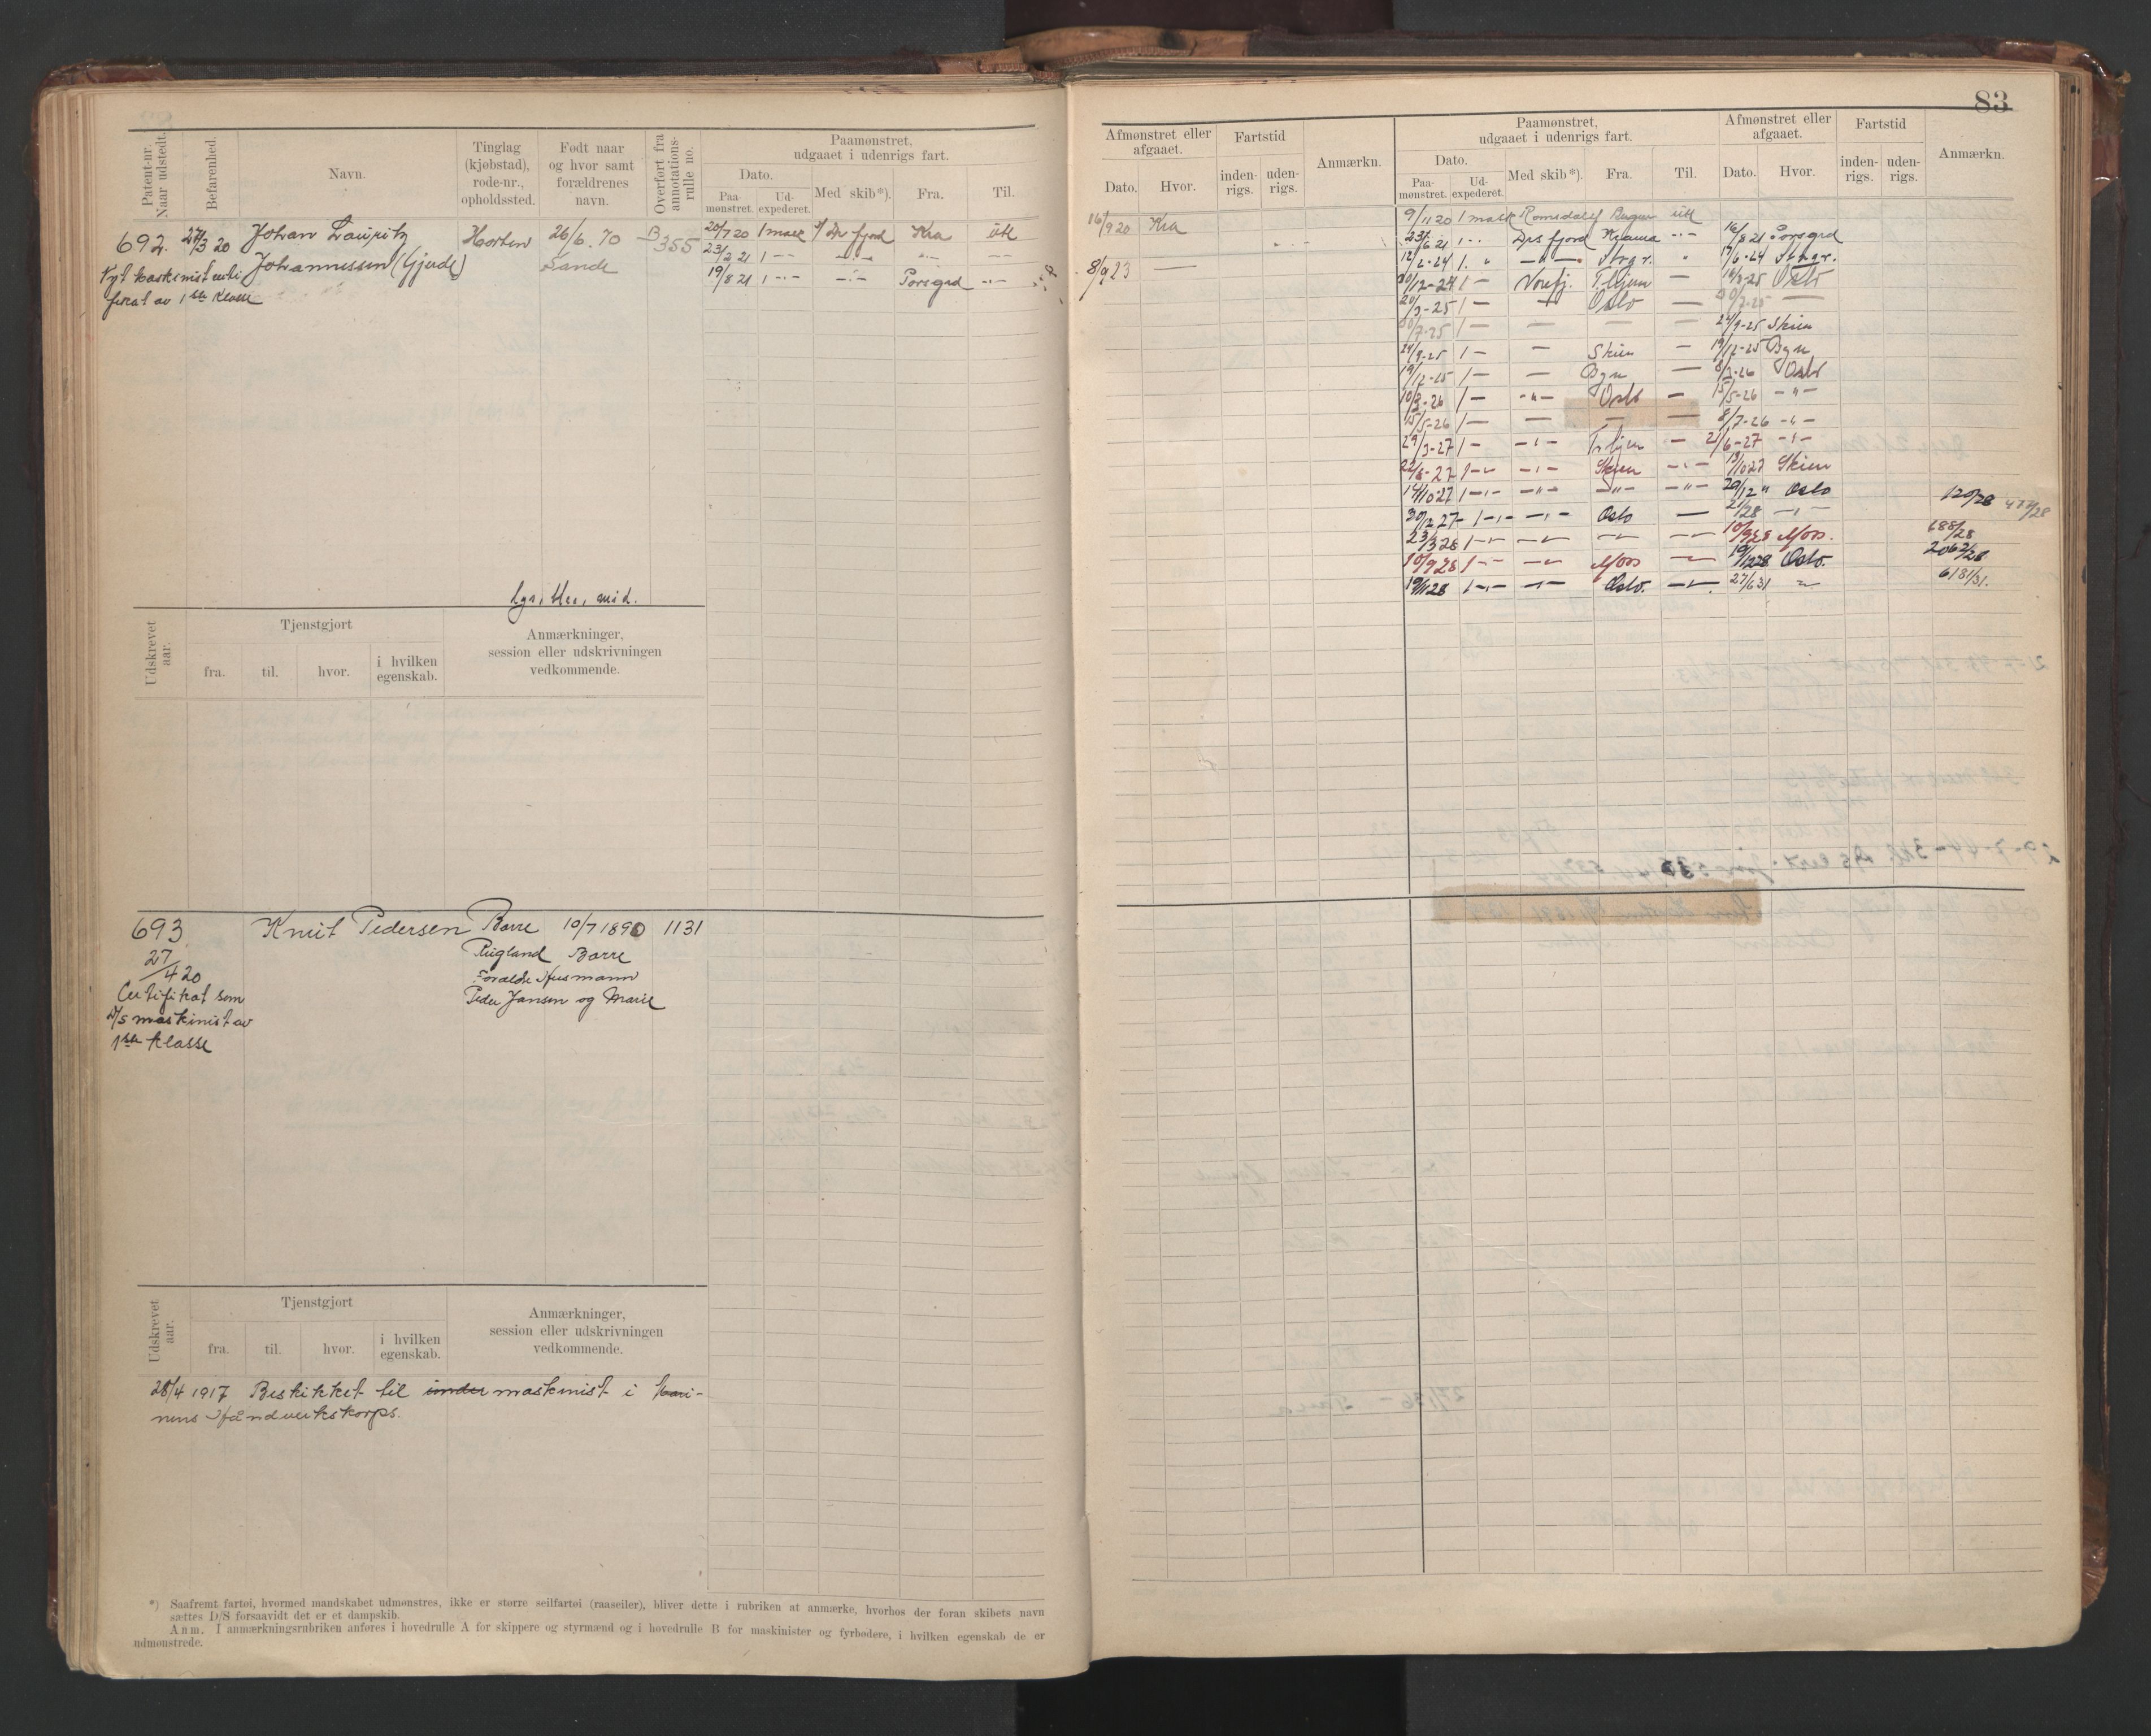 83
Patent-nr. Naar udstedt.
Befarenhed.
Navn.
Tinglag (kjøbstad), rode-nr., opholdssted.
Født naar og hvor samt forældrenes navn.
Overført fra annotations-rulle no.
Paamønstret, udgaaet i udenrigs fart.
Dato.
Paa-mønstret.
Ud-expederet.
Med skib*).
Fra.
Til.
692. 27/3 20 Johan Lauritz Horten 26/6. 70 B 355 20/7 20 1 mask Kra Utl
Johannessen (Gjerde) Sande 23/3 21 1
Nyt maskinistcerti 19/8 21 1 Porsgrd
fikat av 1ste Klasse
Udskrevet aar.
Tjenstgjort
fra. til. hvor. i hvilken egenskab.
Anmærkninger, session eller udskrivningen vedkommende.
693 Knut Pedersen Borre 10/7 1890 1131
27/4 20 Rigland Borre
Certifikat som Forældre Husmann
D/S maskinist av Peder Jansen og Marie
1ste Klasse
Udskrevet aar.
Tjenstgjort
fra. til. hvor. i hvilken egenskab.
Anmærkninger, session eller udskrivningen vedkommende.
28/4 1917 Beskikket til under maskinist i Mari-
nens Håndverkskorps.
*) Saafremt fartøi, hvormed mandskabet udmønstres, ikke er større seilfartøi (raaseiler), bliver dette i rubriken at anmærke, hvorhos der foran skibets navn
sættes D/S forsaavidt det er et dampskib.
Anm. I anmærkningsrubriken anføres i hovedrulle A for skippere og styrmænd og i hovedrulle B for maskinister og fyrbødere, i hvilken egenskab de er
udmønstrede.
Afmønstret eller afgaaet.
Dato. Hvor.
Fartstid
inden-rigs. uden-rigs.
Anmærkn.
Paamønstret, udgaaet i udenrigs fart.
Dato.
Paa-mønstret. Ud-expederet.
Med skib*). Fra. Til.
Afmønstret eller afgaaet.
Dato. Hvor.
Fartstid
inden-rigs. uden-rigs.
Anmærkn.
16/9 20 Kra 9/11 20 1 mask Romsdalsf Bergen Utl
23/6 21 1 Drs fjord Krania 16/8 21 Porsgrd
12/2-24 1 17/6-24
8/9 23 30/12-24 1 — Norefj. 16/3-25 Oslo
20/3-25 1 — Oslo — 30/7-25 —
30/7-25 1 — — — — 24/9-25 Skien
24/9-25 1 — — Skien — 19/12-25 Bgn
19/12-25 1 — — Bgn — 8/3-26 Oslo
10/3-26 1 — -"- Oslo — 15/5-26 -"-
15/5-26 1 — — — — 8/7-26 -"-
29/3-27 1 — -"- — 2/6-27 -"-
22/8-27 1 — -"- Skien -"- 13/10 27 Skien
14/10-27 1 -"- -"- -"- -"- 29/12 " Oslo 120/28 472/28
30/12 27- 1 -"- -"- Oslo — 2/28 -"-
23/3 28 1 -"- -"- -"- -"- 10/9 28 Moss. 688/28
10/9 28 1 -"- -"- Moss -"- 19/11 28 Oslo. 2062/28
19/11 28 1 -"- -"- Oslo. -"- 27/6 31 " 618/31.